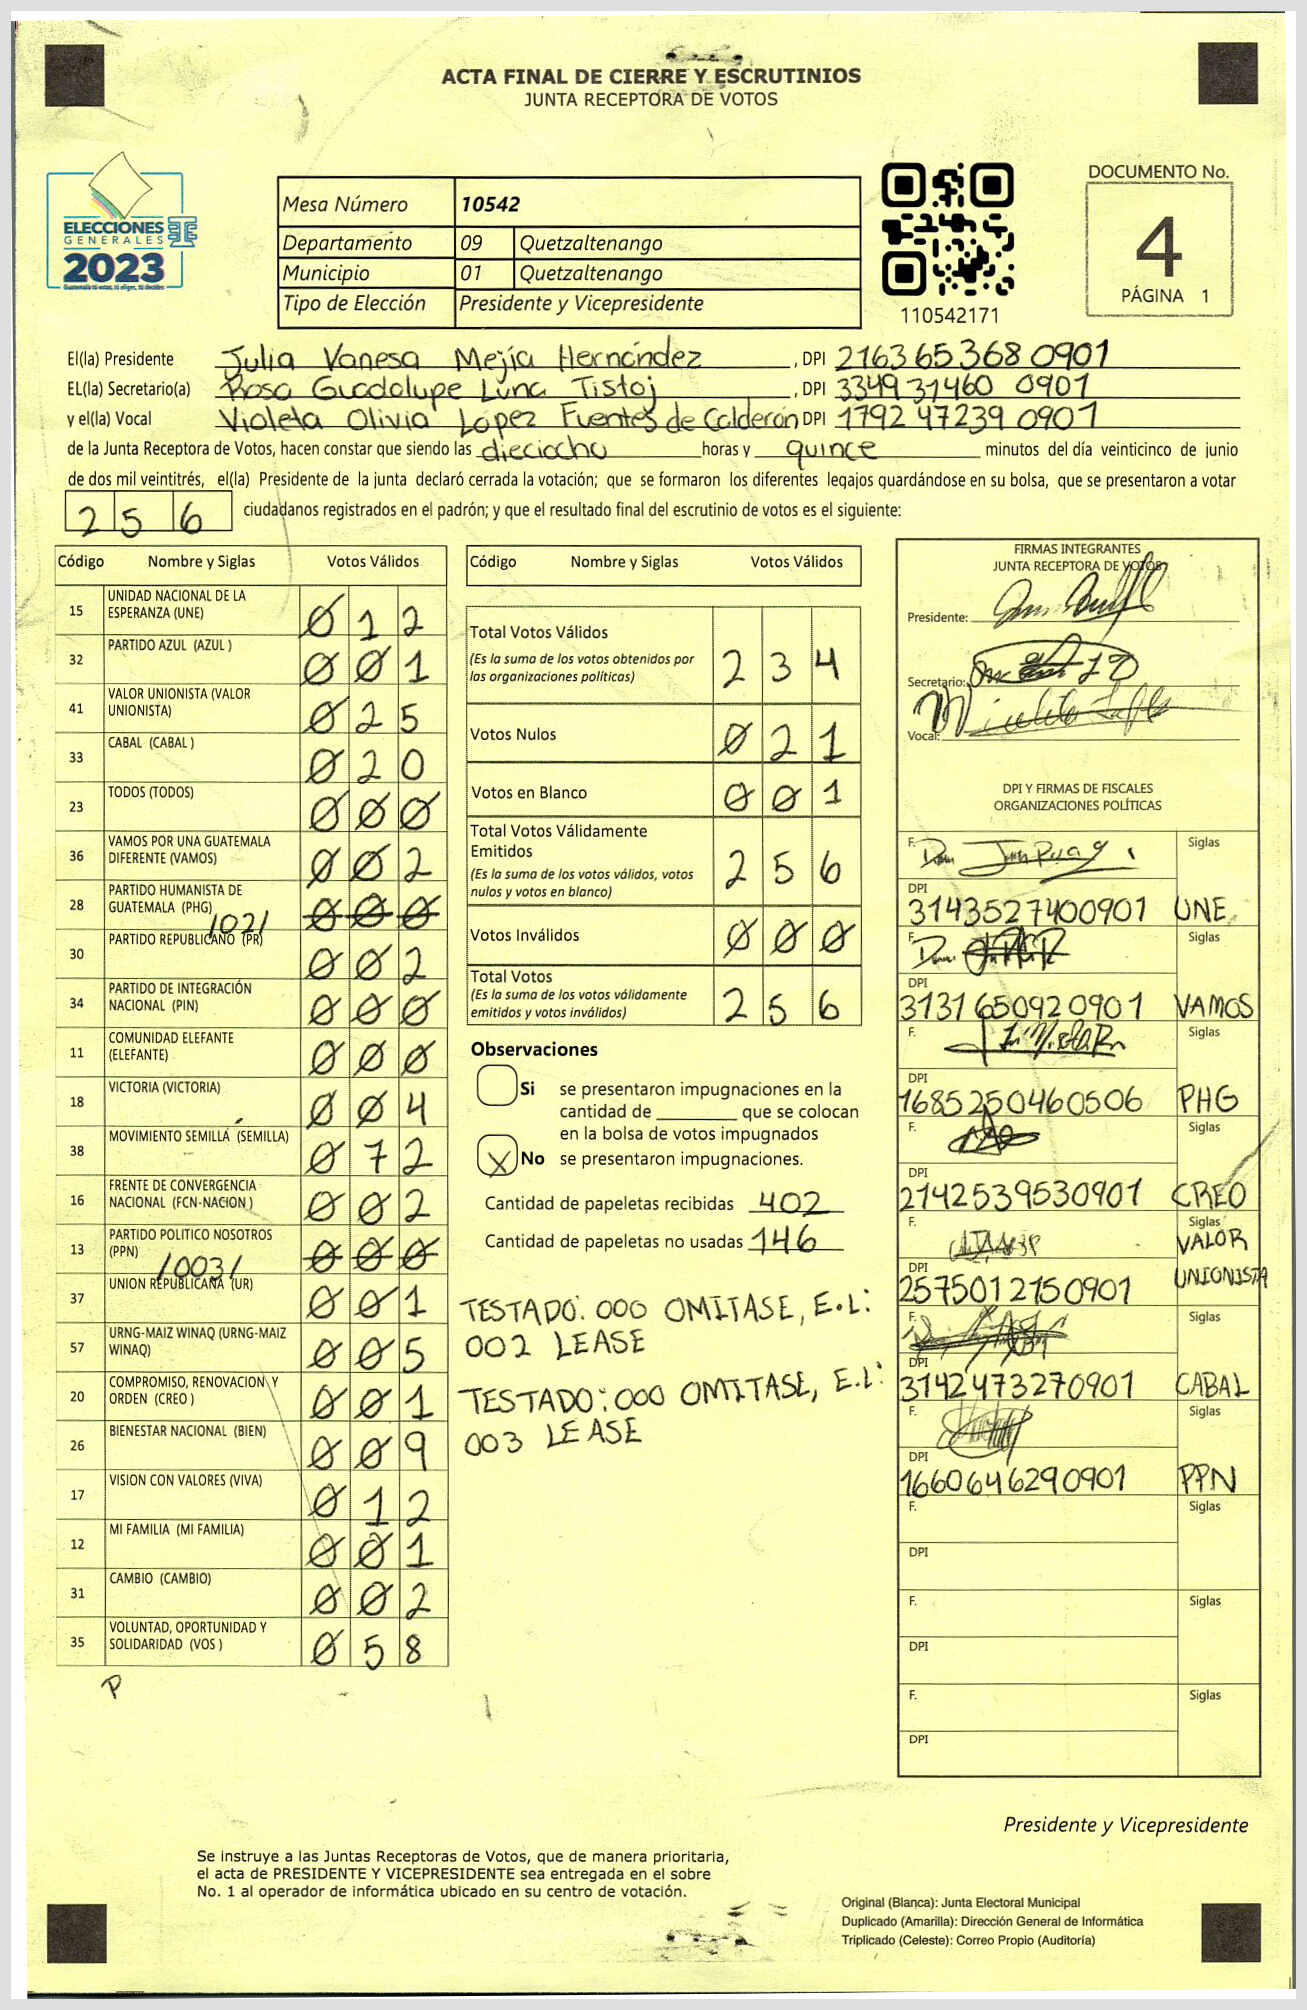 ACTA FINAL DE CIERRE Y ESCRUTINIOS
JUNTA RECEPTORA DE VOTOS
ELECCIONES
GENERALES
2023
Guatemala tú votas, tú eliges, tú decides
Mesa Número 10542
Departamento 09 Quetzaltenango
Municipio 01 Quetzaltenango
Tipo de Elección Presidente y Vicepresidente
110542171
DOCUMENTO No.
4
PÁGINA 1
El(la) Presidente Julia Vanesa Mejía Hernández, DPI 2163 65368 0901
EL(la) Secretario(a) Rosa Guadalupe Luna Tistoj, DPI 3349 31460 0901
y el(la) Vocal Violeta Olivia López Fuentes de Calderón DPI 1792 47239 0901
de la Junta Receptora de Votos, hacen constar que siendo las dieciocho horas y quince minutos del día veinticinco de junio
de dos mil veintitrés, el(la) Presidente de la junta declaró cerrada la votación; que se formaron los diferentes legajos guardándose en su bolsa, que se presentaron a votar
256 ciudadanos registrados en el padrón; y que el resultado final del escrutinio de votos es el siguiente:
Código Nombre y Siglas Votos Válidos
15 UNIDAD NACIONAL DE LA
ESPERANZA (UNE) 012
32 PARTIDO AZUL (AZUL ) 001
41 VALOR UNIONISTA (VALOR
UNIONISTA) 025
33 CABAL (CABAL ) 020
23 TODOS (TODOS) 000
36 VAMOS POR UNA GUATEMALA
DIFERENTE (VAMOS) 002
28 PARTIDO HUMANISTA DE
GUATEMALA (PHG) /002/ 000
30 PARTIDO REPUBLICANO (PR) 002
34 PARTIDO DE INTEGRACIÓN
NACIONAL (PIN) 000
11 COMUNIDAD ELEFANTE
(ELEFANTE) 000
18 VICTORIA (VICTORIA) 004
38 MOVIMIENTO SEMILLA (SEMILLA) 072
16 FRENTE DE CONVERGENCIA
NACIONAL (FCN-NACION ) 002
13 PARTIDO POLITICO NOSOTROS
(PPN) /003/ 000
37 UNION REPUBLICANA (UR) 001
57 URNG-MAIZ WINAQ (URNG-MAIZ
WINAQ) 005
20 COMPROMISO, RENOVACION Y
ORDEN (CREO ) 001
26 BIENESTAR NACIONAL (BIEN) 009
17 VISION CON VALORES (VIVA) 012
12 MI FAMILIA (MI FAMILIA) 001
31 CAMBIO (CAMBIO) 002
35 VOLUNTAD, OPORTUNIDAD Y
SOLIDARIDAD (VOS ) 058
P
Código Nombre y Siglas Votos Válidos
Total Votos Válidos 234
(Es la suma de los votos obtenidos por
las organizaciones políticas)
Votos Nulos 021
Votos en Blanco 001
Total Votos Válidamente
Emitidos 256
(Es la suma de los votos válidos, votos
nulos y votos en blanco)
Votos Inválidos 000
Total Votos 256
(Es la suma de los votos válidamente
emitidos y votos inválidos)
Observaciones
Si se presentaron impugnaciones en la
cantidad de ________ que se colocan
en la bolsa de votos impugnados
X No se presentaron impugnaciones.
Cantidad de papeletas recibidas 402
Cantidad de papeletas no usadas 146
TESTADO: 000 OMITASE, E.L:
002 LEASE
TESTADO: 000 OMITASE, E.L:
003 LEASE
FIRMAS INTEGRANTES
JUNTA RECEPTORA DE VOTOS
Presidente:
Secretario:
Vocal:
DPI Y FIRMAS DE FISCALES
ORGANIZACIONES POLÍTICAS
F. Siglas
DPI
3143527400901 UNE
F. Siglas
DPI
3131650920901 VAMOS
F. Siglas
DPI
1685250460506 PHG
F. Siglas
DPI
2142539530901 CREO
F. Siglas
VALOR
DPI
2575012150901 UNIONISTA
F. Siglas
DPI
3142473270901 CABAL
F. Siglas
DPI
1660646290901 PPN
F. Siglas
DPI
F. Siglas
DPI
F. Siglas
DPI
Presidente y Vicepresidente
Se instruye a las Juntas Receptoras de Votos, que de manera prioritaria,
el acta de PRESIDENTE Y VICEPRESIDENTE sea entregada en el sobre
No. 1 al operador de informática ubicado en su centro de votación.
Original (Blanca): Junta Electoral Municipal
Duplicado (Amarilla): Dirección General de Informática
Triplicado (Celeste): Correo Propio (Auditoría)